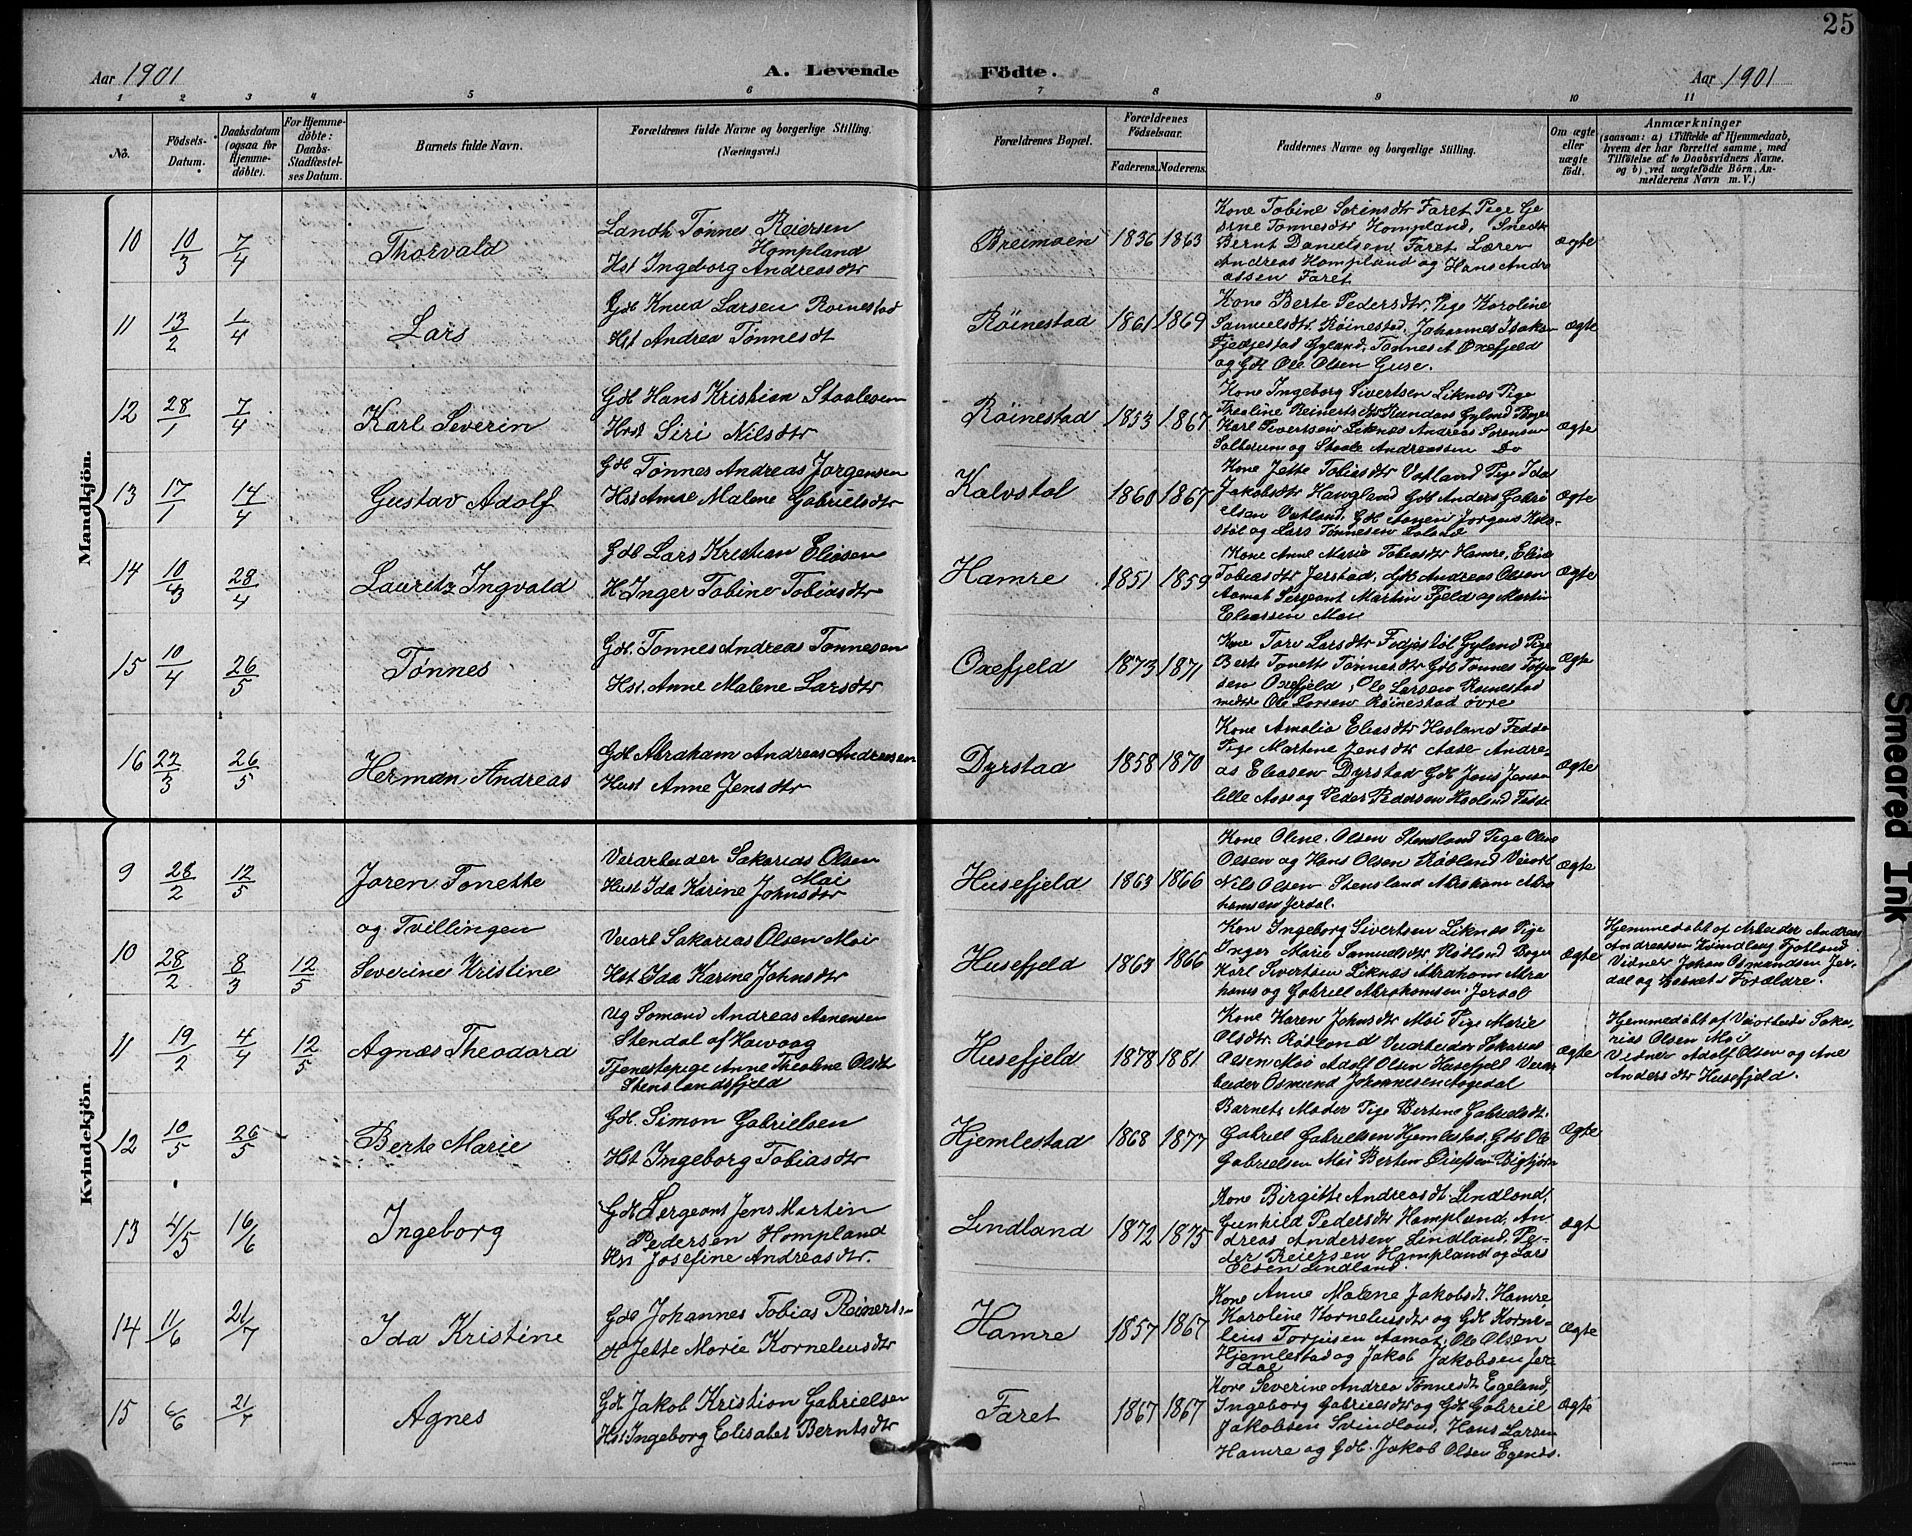 25
Aar 1901
A. Levende
Födte.
Aar 1901
1 2 3 4 5 6 7 8 9 10 11
No.
Födsels-
Datum.
Daabsdatum
(ogsaa for
Hjemme-
døbte).
For Hjemme-
døbte:
Daabs-
Stadfæstel-
ses Datum.
Barnets fulde Navn.
Forældrenes fulde Navne og borgerlige Stilling.
(Næringsvei.)
Forældrenes Bopæl.
Forældrenes
Födselsaar.
Faderens.
Moderens.
Faddernes Navne og borgerlige Stilling.
Om ægte
eller
uægte
født.
Anmærkninger
(saasom: a) i Tilfælde af Hjemmedaab,
hvem der har forrettet samme, med
Tilföielse af to Daabsvidners Navne.
og b) ved uægtefødte Börn, An-
melderens Navn m. V.)
Mandkjön.
10 10/3 7/4 Thorvald
Landh Tønnes Reiersen
Hompland
Hst Ingeborg Andreasdtr
Breimoen 1836 1863
Kone Tobine Sørensdtr Faret Pige Ge
orne Tønnesdtr Hompland, Snedk
Bernt Danielsen Faret Lærer
Andreas Hompland og Hans Andre
assen Faret
ægte
11 13/2 1/4 Lars
Gdb Knud Larsen Roinestad
Hst Andrea Tønnesdt
Röinestad 1861 1869
Kone Berte Pedersdtr, Pige Karoline
Samuelsdtr Röinestad, Johannes Isaks
Fjedjestad Gyland, Tønnes A Oxefjeld
og Gdb Ole Olsen Guse.
ægte
12 28/1 7/4 Karl Severin
Gdb Hans Kristian Staalesen
Hst Siri Nilsdtr
Röinestad 1853 1867
Kone Ingeborg Sivertsen Liknæs Pige
Thealine Reinertsdtr Gylnd
Karl Sivertsen Liknæs Andreas Sørensen
og Staale Andreassen Do
ægte
13 17/1 14/4 Gustav Adolf
Gdb Tønnes Andreas Jørgensen
Hst Anne Malene Gabrielsdtr
Kalvstøl 1860 1867
Kone Jette Tobiasdtr Vatland Pige Ida
Jakobsdtr Haugland Gdb Anders Gabri
elsen Vatland, Gdb Aanen Jørgens Kalv-
støl og Lars Tønnesen Loland
ægte
14 10/3 28/4 Lauritz Ingvald
Gdb Lars Kristian Eliasen
H Inger Tobine Tobiasdtr
Hamre 1851 1859
Kone Anne Marie Tobiasdtr Hamre, Elise
Tobiasdtr Jerstad, Gdb Andreas Olsen
Aamot Sergeant Martin Fjeld og Martin
Eliassen Moi
ægte
15 10/4 26/5 Tønnes
Gdb. Tønnes Andreas Tønnesen
Hst. Anne Malene Larsdtr
Oxefjeld 1873 1871
Kone Tarv Larsdtr Gyland Pige
Berte Tonette Tønnesdtr Gdb Tønnes
sen Oxefjeld, Ole Larsen Röinestad
Ole Larsen Röinestad øvre
ægte
16 22/3 26/5 Herman Andreas
Gdb Abraham Andreas Andreasen
Hust Anne Jensdtr
Dyrstad 1858 1870
Kone Amalia Eliasdtr Haaland Fedde
Pige Martine Jensdtr Aase Andre-
as Eliasen Dyrstad Gdb Jens Jensen
lille Aase og Peder Pedersen Haaland Fedde
ægte
Kvindekjön.
9 28/2 12/5 Joren Tonette
Veiarbeider Sakarias Olsen
Moi
Hust Ida Karine Johnsdtr
Husefjeld 1863 1866
Kone Oline Olsen Stensland Pige Oline
Olsen og Hans Olsen Rödland Veiarb
Nils Olsen Stensland Abraham Abra
hamsen Jerdal.
ægte
10 28/2 8/3 12/5 og Tvillingen
Severine Kristine
Veiarb Sakarias Olsen Moi
Hst Ida Karine Johnsdtr
Husefjeld 1863 1866
Kon Ingeborg Sivertsen Liknæs Pige
Inger Marie Samuelsdtr Rødland
Karl Sivertsen Liknæs Abraham Abra
hams og Gabriel Abrahamsen Jerdal
ægte
Hjemmedøbt af Arbeider Andreas
Andreassen Kvindlog Fjotland
Vidner Johan Osmundsen Jer-
dal og Barnets Forældre.
11 19/2 4/4 12/5 Agnes Theodora
Ug Sømand Andreas Aanensen
Stendal af Haivaag
Tjenestepige Anne Theoline Olsdtr
Stenslandsfjeld
Husefjeld 1878 1881
Kone Karen Johnsdtr Moi Pige Marie
Olsdtr Rødland Veiarbeider Sakarias
Olsen Moi Adolf Olsen Husefjeld Veiar
beider Osmund Johannesen Aagedal
ægte
Hjemmedøbt af Veiarbeide Saka-
rias Olsen Moi
Vidner Adolf Olsen og Ane
Andersdtr Husefjeld.
12 10/5 26/5 Berte Marie
Gdb. Simon Gabrielsen
Hst Ingeborg Tobiasdtr
Hjemlestad 1868 1877
Barnets Moder Pige Bertine Gabrielsdt.
Gabriel Gabrielsen Hjemlestad, Gdb Ole
Gabrielsen Moi Berten
ægte
13 4/5 16/6 Ingeborg
Gdb Sergeant Jens Martin
Pedersen Hompland
Hst Josefine Andreasdtr.
Lindland 1872 1875
Kone Birgitte Andreasdt Lindland,
Gunhild Pedersdtr Hompland, An-
dreas Andersen Lindland, Pe-
der Reiersen Hompland og Lars
Olsen Lindland.
ægt
14 11/6 21/7 Ida Kristine
Gdb Johannes Tobias Reinertsn
H Jette Marie Korneliusdtr
Hamre 1857 1867
Kone Anne Malene Jakobsdt. Hamre,
Karoline Korneliusdtr og Gdb Korne-
lius Torjusen Aamot, Ole Olsen
Hjemlestad og Jakob Jakobsen Jer
dal
ægte
15 6/6 21/7 Agnes
Gdb Jakob Kristian Gabrielsen
Hst. Ingeborg Elisabet Berntsdtr
Faret 1867 1867
Kone Severine Andrea Tønnesdt Egeland,
Ingeborg Gabrielsdtr og Gdb Gabriel
Jakobsen Svindland, Hans Larsen
Hamre og Gdb. Jakob Olsen Egends.
ægte
Smeared Ink